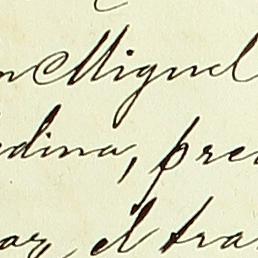 n Miguel
edina, pre
ar, el tra